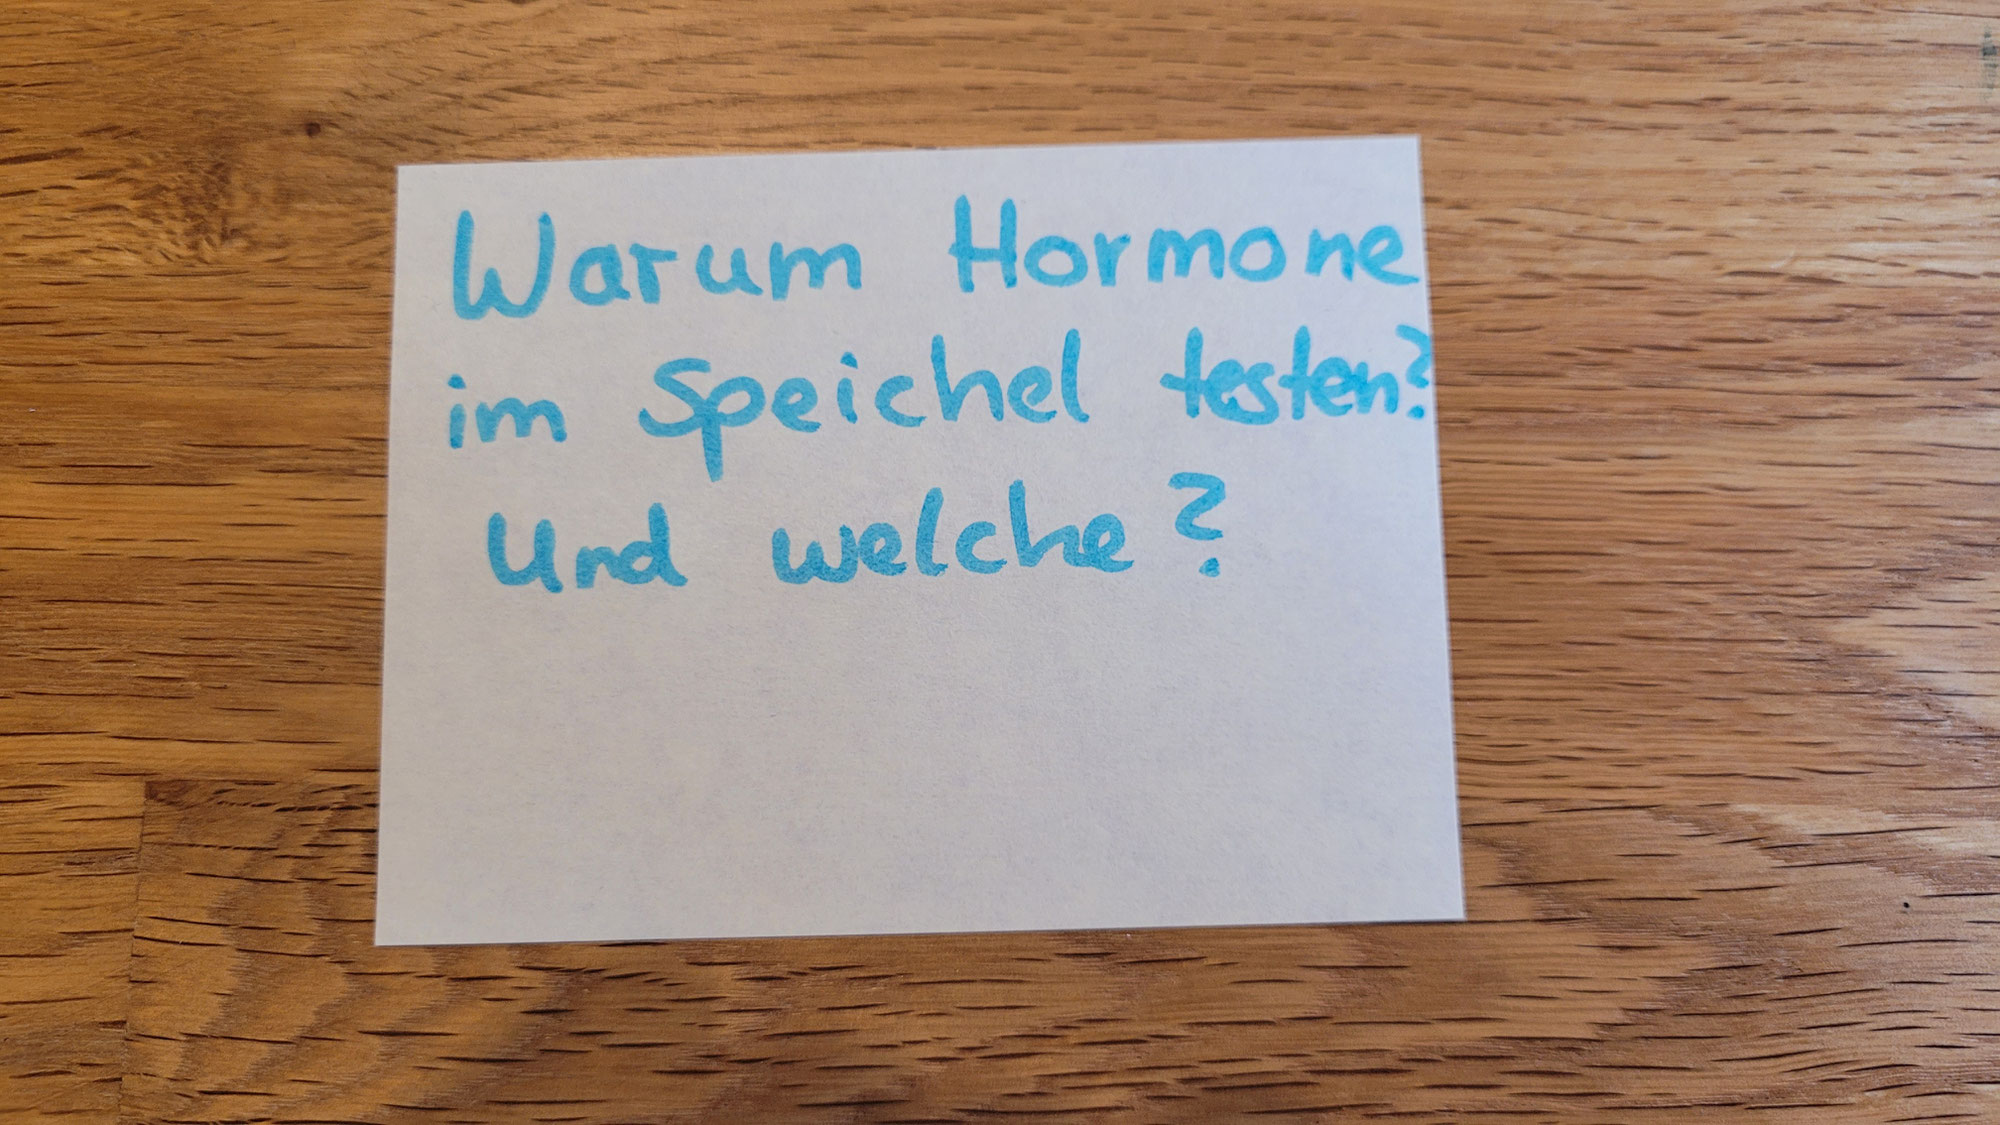 Warum Hormone
im Speichel testen?
Und welche?